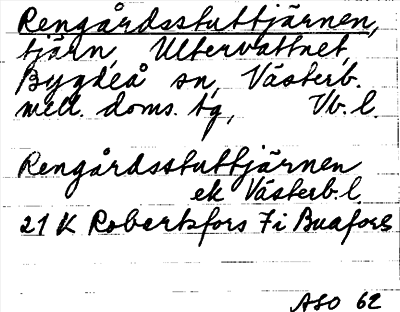 Rengårdsstuttjärnen,
tjärn, Ultervattnet,
Bygdeå sn, Västerb.
mell. doms. tg, Vb. l.
Rengårdsstuttjärnen
ek Västerb. l
21 K Robertsfors 7 i Buafors
ASO 62